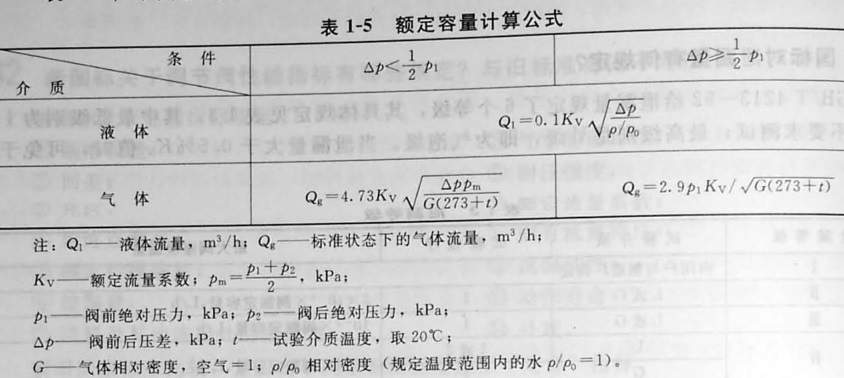 表 1-5 额定容量计算公式
条 件
介 质
Δp<1/2 p₁
Δp≥1/2 p₁
液 体
Q₁=0.1Kᵥ √(Δp/(ρ/ρ₀))
气 体
Q_g=4.73Kᵥ √(Δp p_m/(G(273+t)))
Q_g=2.9p₁Kᵥ/√(G(273+t))
注：Q₁——液体流量，m³/h；Q_g——标准状态下的气体流量，m³/h；
Kᵥ——额定流量系数；p_m=(p₁+p₂)/2，kPa；
p₁——阀前绝对压力，kPa；p₂——阀后绝对压力，kPa；
Δp——阀前后压差，kPa；t——试验介质温度，取 20℃；
G——气体相对密度，空气=1；ρ/ρ₀ 相对密度（规定温度范围内的水 ρ/ρ₀=1）。